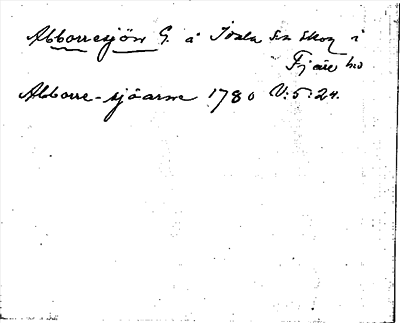 Abborresjön G. å Idala sn skog i
Fjäre hd
Abborre-sjöarne 1780 V:5:24.